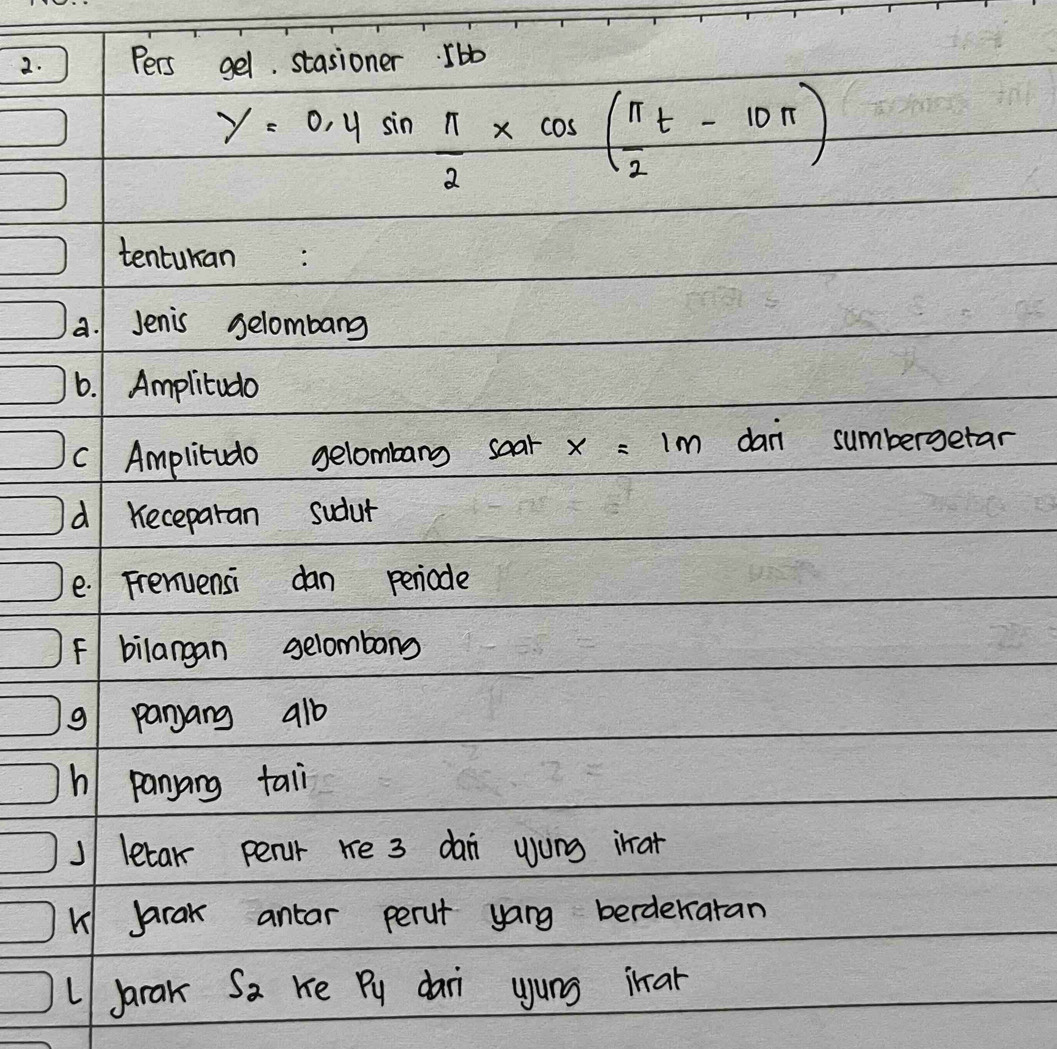 2. Pers gel. stasioner sbb
y = 0,4 sin π/2 x cos (π/2 t - 10 π)
tentukan :
a. Jenis gelombang
b. Amplitudo
c Amplitudo gelombang saat x = 1m dari sumbergetar
d Kecepatan sudut
e. Frekuensi dan periode
F bilangan gelombang
g panjang glb
h panjang tali
J letak perut ke 3 dari ujung ikat
K Jarak antar perut yang berdekatan
L Jarak S2 ke P4 dari ujung ikat